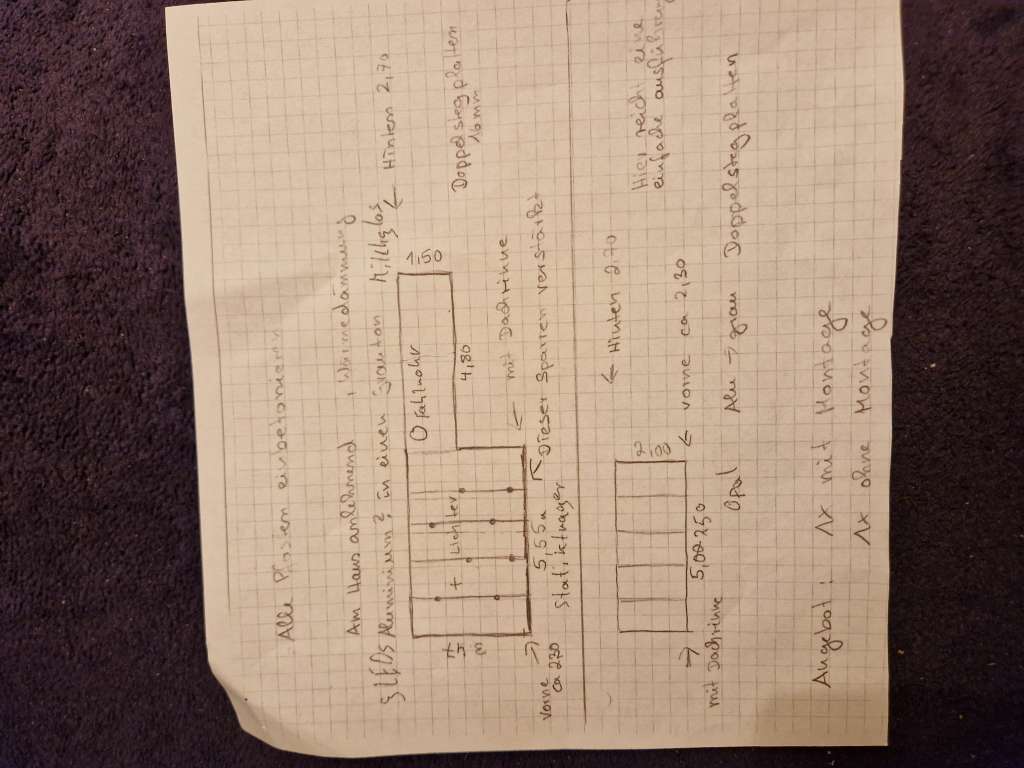 Alle Pfosten einbetonieren
Am Haus anlehnend , Wärmedämmung
8 LEDs Aluminium 2, in einen grauton Milchglas
← Hinten 2,70
O Fahlrohr
1,50
Doppelstegplatten
16mm
+ Lichter
4,80
mit Dachrinne
←
3
5,55m
Dieser Sparren verstärkt
Statiktträger
vorne →
ca 230
← Hinten 2.70
Hier reicht eine
einfache ausführung
2,00
← vorne ca 2,30
5,00
250
→
mit Dachrinne
Opal Alu → grau Doppelstegplatten
Angebot : 1x mit Montage
1x ohne Montage